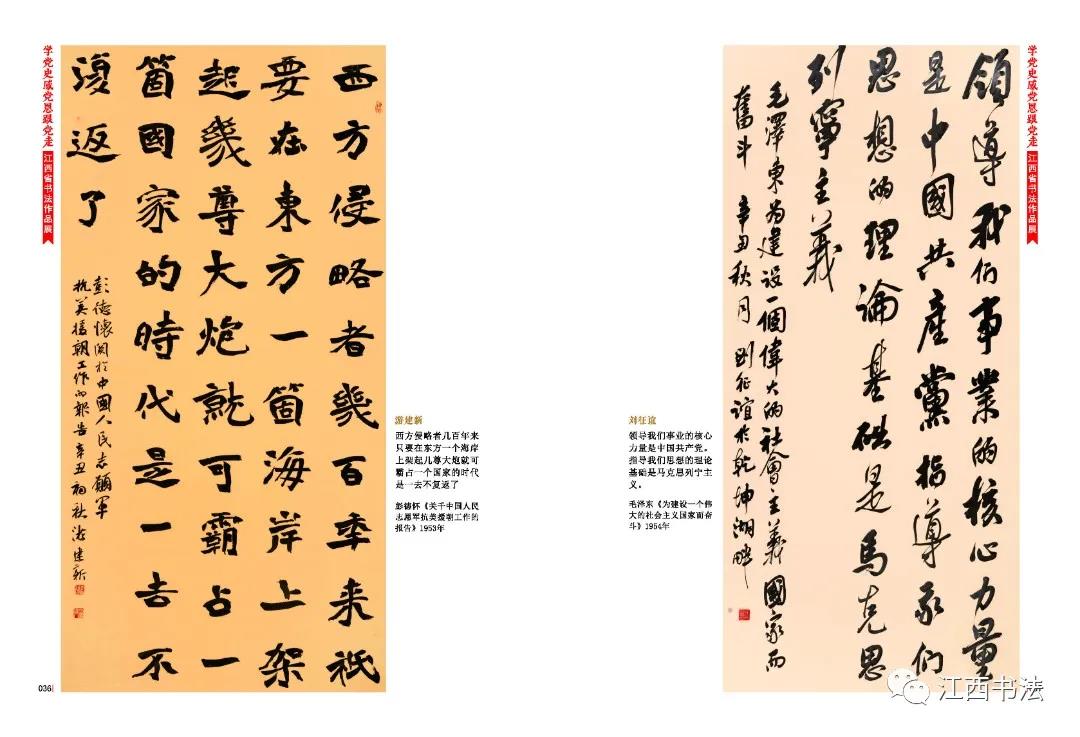 学党史感党恩跟党走
江西省书法作品展
西方侵略者幾百年来祇
要在東方一箇海岸上架
起幾尊大炮就可霸占一
箇國家的時代是一去不
復返了
彭德懷関於中國人民志願軍
抗美援朝工作的報告 辛丑初秋 游建新
游建新
西方侵略者几百年来
只要在东方一个海岸
上架起几尊大炮就可
霸占一个国家的时代
是一去不复返了
彭德怀《关于中国人民
志愿军抗美援朝工作的
报告》1953年
036
领導我们事業的核心力量
是中國共產黨指導我们
思想的理論基礎是馬克思
列寧主義
毛澤東为建設一個偉大的社會主義國家而
奮斗 辛丑秋月 劉征誼於乾坤湖畔
刘征谊
领导我们事业的核心
力量是中国共产党。
指导我们思想的理论
基础是马克思列宁主
义。
毛泽东《为建设一个伟
大的社会主义国家而奋
斗》1954年
学党史感党恩跟党走
江西省书法作品展
江西书法